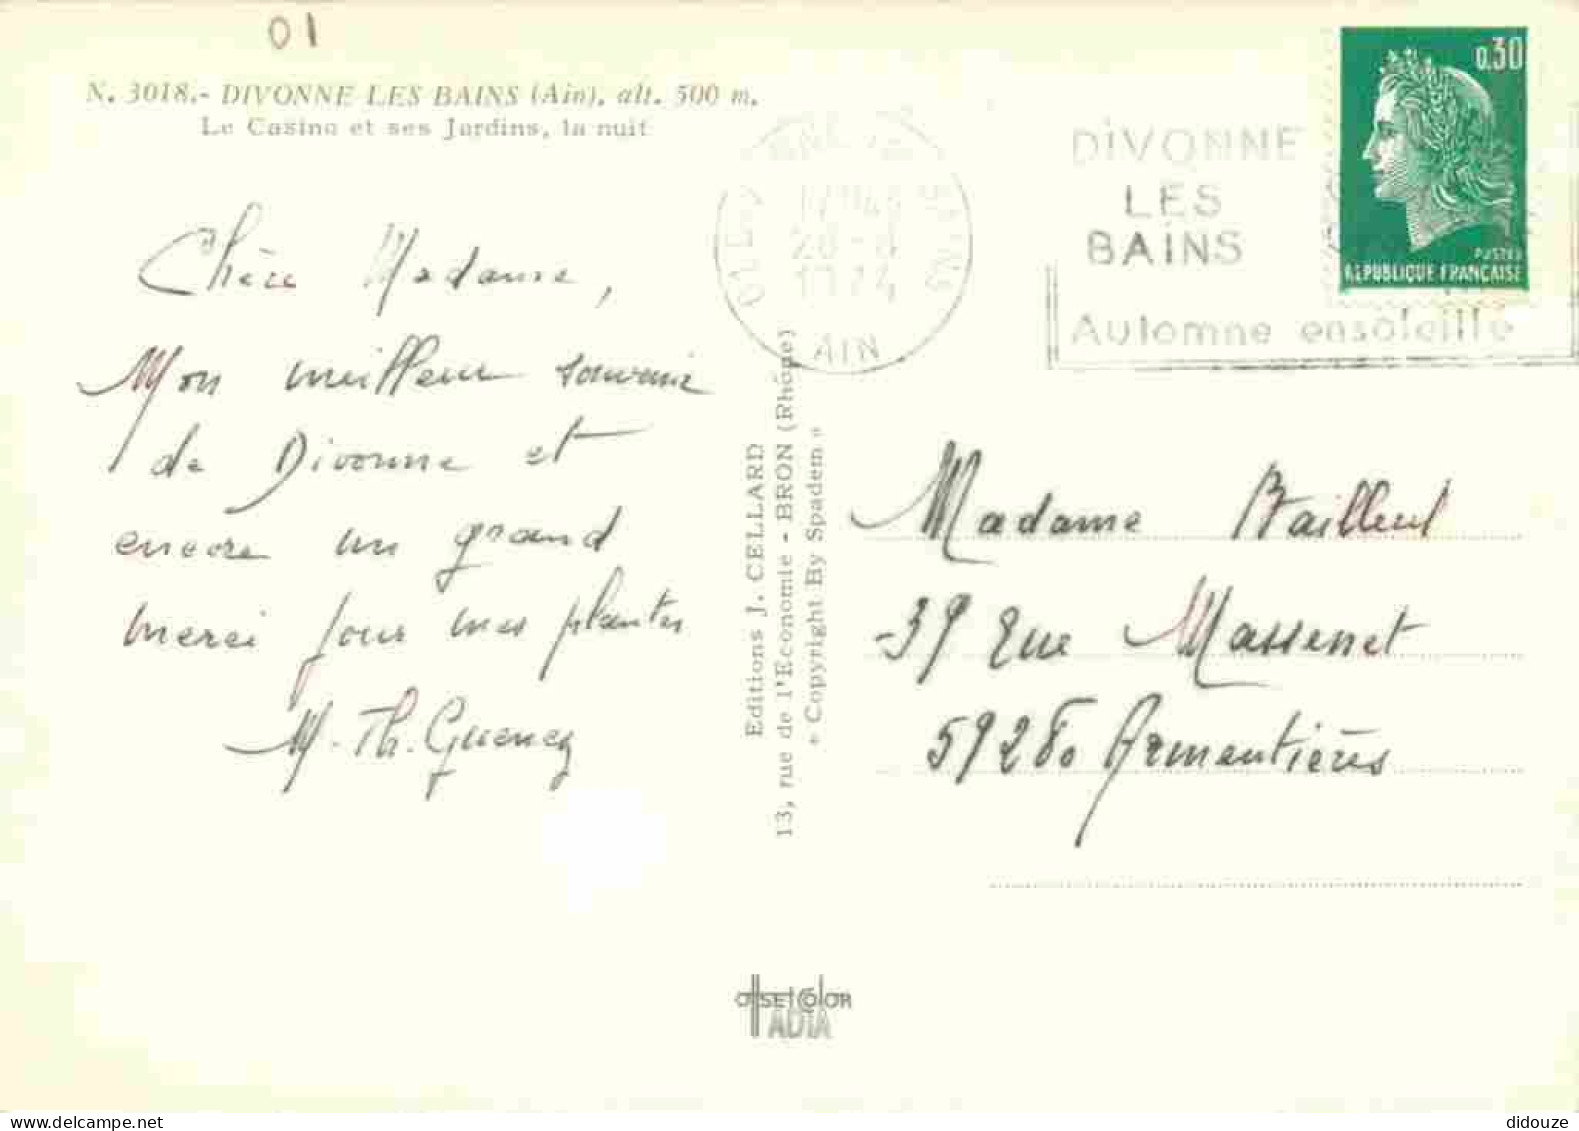 01
N. 3018.- DIVONNE LES BAINS (Ain), alt. 500 m.
Le Casino et ses Jardins, la nuit
Chère Madame,
Mon meilleur souvenir
de Divonne et
encore un grand
merci pour mes plantes
M. Th. Guenez
Editions J. CELLARD
13, rue de l'Economie - BRON (Rhône)
« Copyright By Spadem »
1974
AIN
DIVONNE
LES
BAINS
Automne ensoleillé
0,30
POSTES
REPUBLIQUE FRANÇAISE
Madame Bailleul
39 rue Massenet
59280 Armentières
OFFSET COLOR
ADIA
didouze